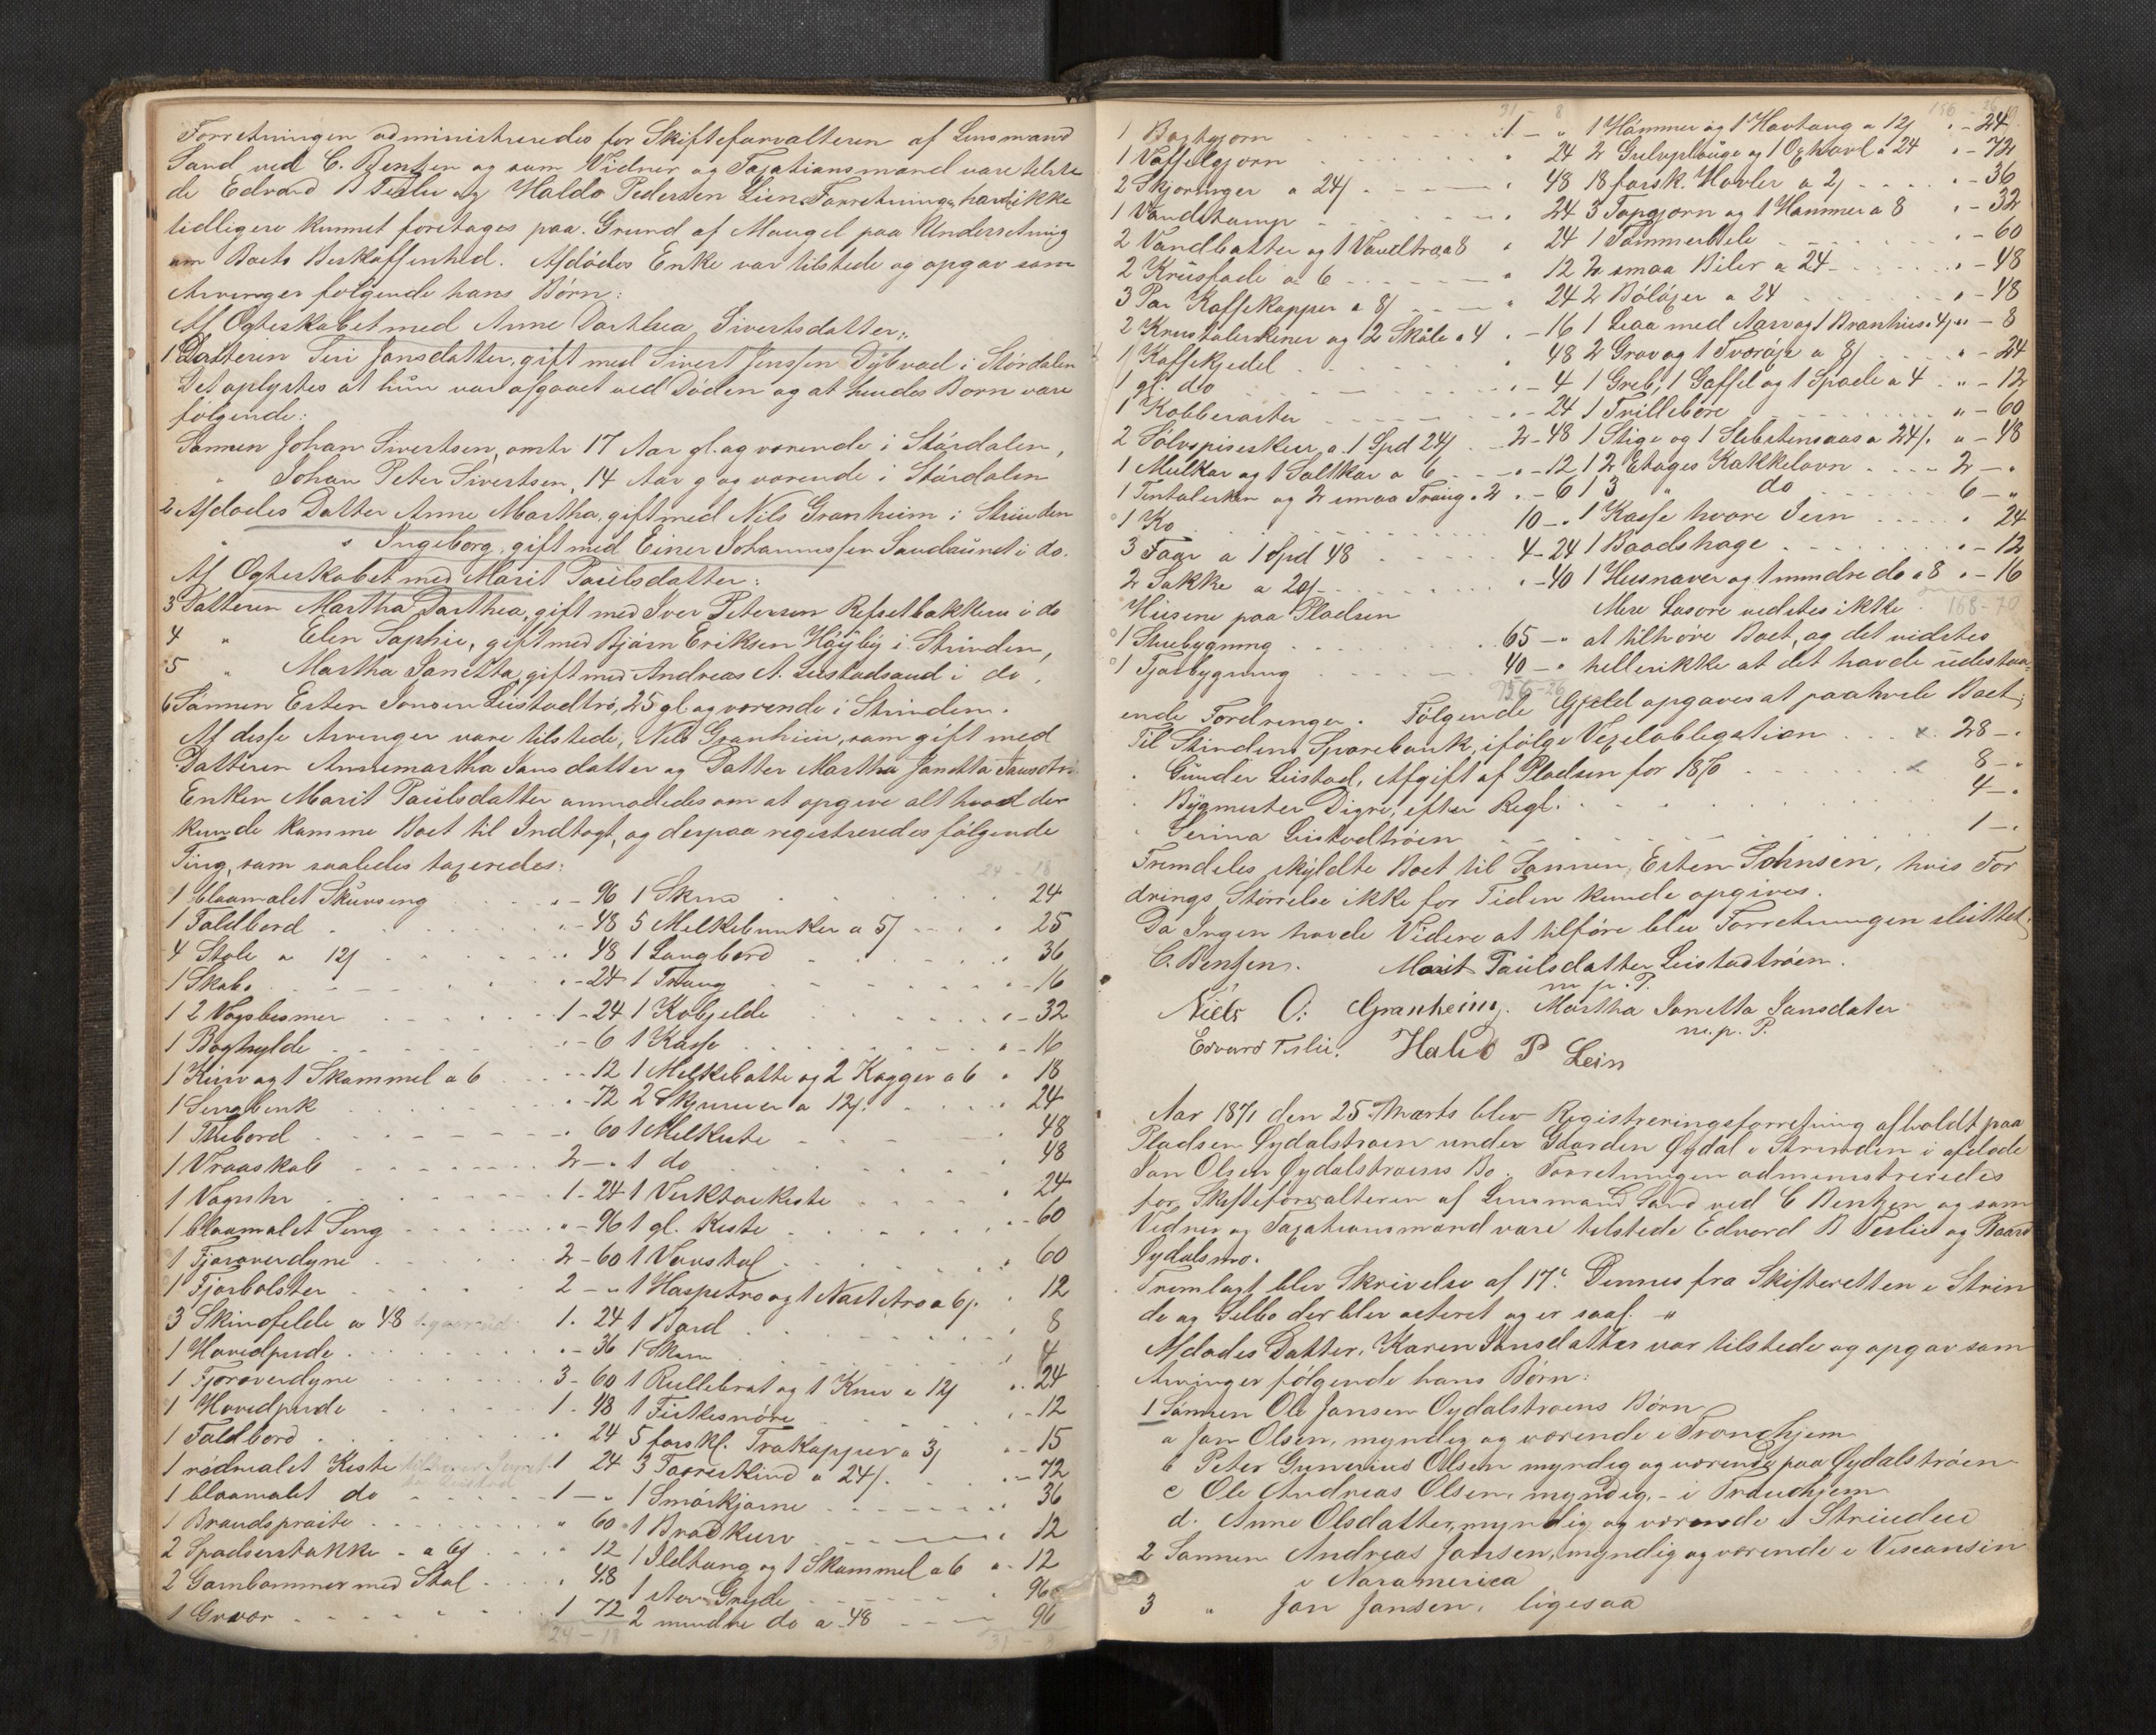 Forretningen administreredes for Skifteforvalteren af Lensmand
Sand ved C. Bentzen og som Vidner og Taxationsmænd vare tilste
de Edvard B Teslie og Haldo Pedersen Lien. Forretningen havde ikke
tidligere kunnet foretages paa Grund af Mangel paa Underretning
om Boets Beskaffenhed. Afdødes Enke var tilstede og opgav som
Arvinger følgende hans Børn:
Af Ægteskabet med Anne Dorthea Sivertsdatter:
1 Datteren Siri Jonsdatter, gift med Sivert Jenssen Dybvad i Størdalen
Det oplystes at hun var afgaaet ved Døden og at hendes Børn vare
følgende:
Sønnen Johan Sivertsen, omtr 17 Aar gl. og værende i Størdalen,
" Johan Peter Sivertsen, 14 Aar g og værende i Størdalen
2 Afdødes Datter Anne Martha, gift med Nils Granheim i Strinden
" " Ingeborg, gift med Einer Johannessen Sandaunet i do.
Af Ægteskabet med Marit Paulsdatter:
3 Datteren Martha Dorthea, gift med Iver Petersen Refsetbakken i do
4 " Elen Sophie, gift med Bjørn Eriksen Høyby i Strinden,
5 " Martha Janetta, gift med Andreas A. Leistadsand i do.
6 Sønnen Esten Jonsen Leistadtrø, 25 gl og værende i Strinden.
Af disse Arvinger vare tilstede, Nils Granheim, som gift med
Datteren Annemartha Jonsdatter og Datter Martha Janetta Jonsdtr.
Enken Marit Paulsdatter anmodedes om at opgive alt hvad der
kunde komme Boet til Indtægt, og derpaa registreredes følgende
Ting, som saaledes taxeredes:
24 - 18
1 blaamalet Skuvseng " - 96
1 Foldbord " - 48
4 Stole a 12ß " 48
1 Skab " - 24
1 2 Vogsbesmer 1 - 24
1 Boghylde " - 6
1 Kurv og 1 Skammel a 6 " - 12
1 Sengbenk " - 72
1 Thebord " 60
1 Vraaskab 2 - "
1 Væguhr 1 - 24
1 blaamalet Seng " - 96
1 Fjæroverdyne 2 - 60
1 Fjærbolster 2 - "
3 Skindfelde a 48 1. 24
1 Hovedpude " - 36
1 Fjæroverdyne 3 - 60
1 Hovedpude 1 - 48
1 Foldbord " 24
1 rødmalet Kiste 1 24
1 blaamalet do 1 - "
1 Brandsprøite " 60
2 Spadserstokke a 6ß " 12
2 Garnbommer med Stol " 48
1 Gryde 1 72
24 - 18
1 Skrin 24
5 Melkebunker a 5ß " 25
1 Langbord " 36
1 Traug " - 16
1 Kobjelde " - 32
1 Kasse " - 16
1 Melkebøtte og 2 Kagger a 6 " 18
2 Skjurner a 12ß " 24
1 Melkiste " 48
1 do " 48
1 Verktøikiste " 24
1 gl. Kiste " - 60
1 Vævstol " 60
1 Haspetræ og 1 Nøstetræ a 6ß " 12
1 Bord " 8
1 Skrin " 4
1 Rullebræt og 1 Kniv a 12ß " 24
1 Fiskesnøre " - 12
5 forskl. Trækopper a 3ß " - 15
3 Faareskind a 24ß " - 72
1 Smørkjærne " 36
1 Brødkurv " 12
1 Ildtang og 1 Skammel a 6 " - 12
1 stor Gryde " 96
2 mindre do a 48 96
31 - 8
31 - 8
1 Bagjern 1 - "
1 Vaffeljern " 24
2 Skjæringer a 24ß " 48
1 Vandstamp " 24
2 Vandbøtter og 1 Vandtræ a 8 " 24
2 Krusfade a 6 " 12
3 Par Kaffekopper a 8ß " 24
2 Krustalerkener og 2 Skåle a 4 " - 16
1 Kaffekjedel " 48
1 gl. do " - 4
1 Kobberøster " - 24
2 Sølvspiseskeer a 1 Spd 24ß 2 - 48
1 Melkar og 1 Saltkar a 6 " - 12
1 Tintalerken og 2 smaa Traug a 2 " - 6
1 Ko 10 - "
3 Faar a 1 Spd 48 4 - 24
2 Sække a 20ß " - 40
Husene paa Pladsen
1 Stuebygning 65 - "
1 Fjøsbygning 40 - "
156 - 26
156 - 26
1 Hammer og 1 Hovtang a 12ß " - 24
2 Gulvpløuge og 1 Oxhøvl a 24 " - 72
18 forsk. Høvler a 2ß " - 36
3 Tapjern og 1 Hammer a 8 " - 32
1 Tømmerbile " - 60
2 smaa Biler a 24 " - 48
2 Buløxer a 24 " - 48
1 Ljaa med Aarv og 1 Brynhus a 4ß " - 8
2 Grev og 1 Tverøxe a 8ß " - 24
1 Greb, 1 Gaffel og 1 Spade a 4 " - 12
1 Trillebøre " - 60
1 Stige og 1 Slibestensaas a 24ß " - 48
1 2 Etages Kakkelovn 2 - "
1 3 " do 6 - "
1 Kasse hvori Jern " 24
1 Baadshage " - 12
1 Husnaver og 1 mindre do a 8 " - 16
Mere Løsøre vidstes ikke 168 - 70
at tilhøre Boet, og det vidstes
heller ikke at det havde udestaa-
ende Fordringer. Følgende Gjeld opgaves at paahvile Boet:
Til Strindens Sparebank, ifølge Vexelobligation x 28 - "
" Gunder Leistad, Afgift af Pladsen for 1870 x 8 - "
" Bygmester Digre, efter Regl. 4 - "
" Serina Leistadtrøen 1 - "
Fremdeles skyldte Boet til Sønnen, Esten Johnsen, hvis For
drings Størrelse ikke for Tiden kunde opgives.
Da Ingen havde Videre at tilføre blev Forretningen sluttet.
C. Bentzen. Marit Paulsdatter Leistadtrøen.
m. p. P.
Niels O: Granheim. Martha Janetta Jansdater
m. p. P.
Edvard Teslie. Haldo P Lein
Aar 1871 den 25 Marts blev Registreringsforretning afholdt paa
Pladsen Øydalstrøen under Gaarden Øydal i Strinden i afdøde
Jon Olsen Øydalstrøens Bo. Forretningen administreredes
for Skifteforvalteren af Lensmand Sand ved C Bentzen og som
Vidner og Taxationsmænd vare tilstede Edvard B Teslie og Baard
Øydalsmo.
Fremlagt blev Skrivelse af 17de Dennes fra Skifteretten i Strin
de og Selbo der blev acteret og er saal. "
Afdødes Datter, Karen Jonsdatter var tilstede og opgav som
Arvinger følgende hans Børn:
1 Sønnen Ole Jonsen Øydalstrøens Børn
a Jon Olsen, myndig og værende i Trondhjem
b Peter Gunerius Olsen myndig og værende paa Øydalstrøen
c Ole Andreas Olsen, myndig, - i Trondhjem
d. Anne Olsdatter, myndig og værende i Strinden
2 Sønnen Andreas Jonsen, myndig og værende i Viscansin
i Noramerica
3 " Jon Jonsen, ligesaa